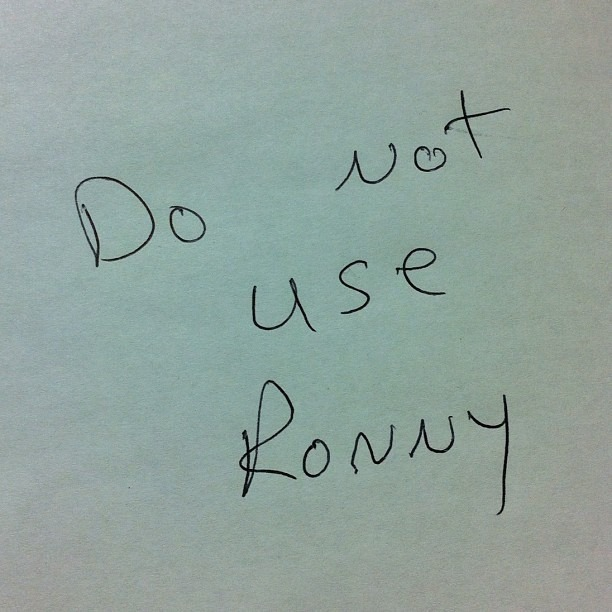 Do not
use
Ronny